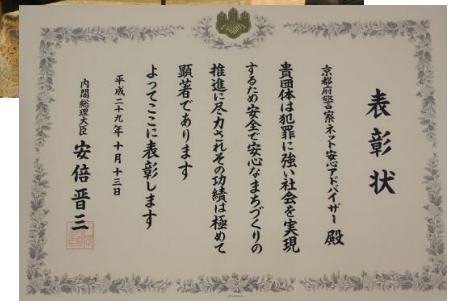 表彰状
京都府警察ネット安心アドバイザー 殿
貴団体は犯罪に強い社会を実現
するため安全で安心なまちづくりの
推進に尽力されその功績は極めて
顕著であります
よってここに表彰します
平成二十九年十月十三日
内閣総理大臣 安倍晋三